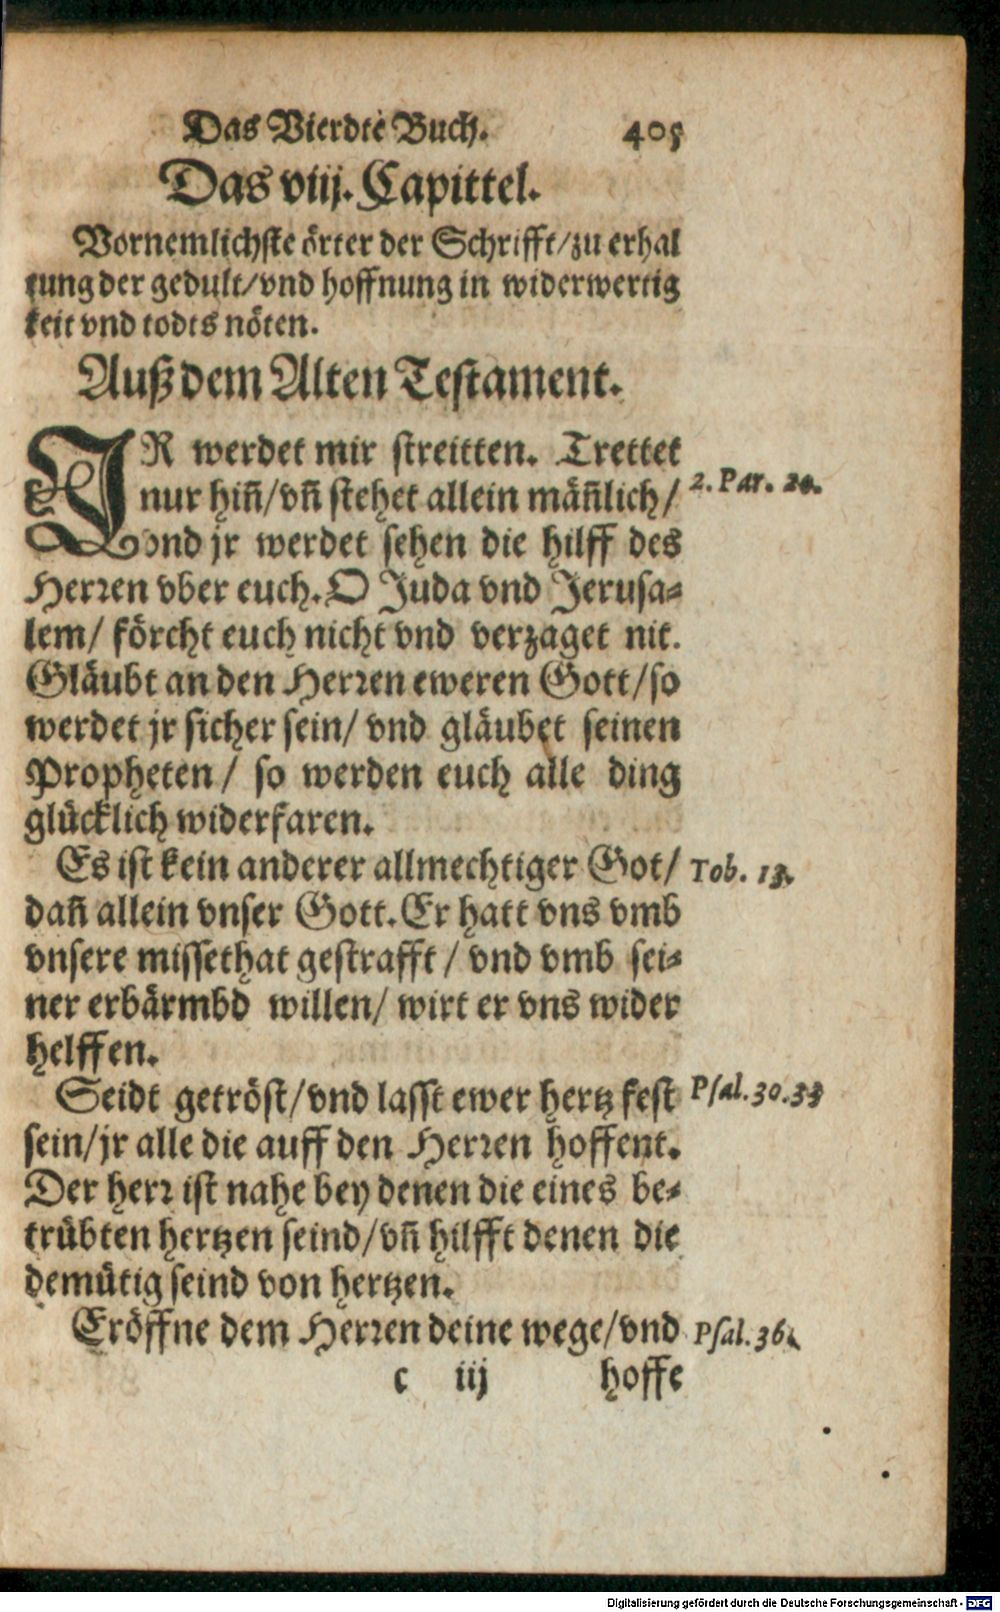 Das Vierdte Buch. 405
Das viij. Capittel.
Vornemlichste örter der Schrifft/zu erhal
tung der gedult/vnd hoffnung in widerwertig
keit vnd todts nöten.
Auß dem Alten Testament.
IR werdet mir streitten. Trettet
nur hin̄/vn̄ stehet allein män̄lich/ 2. Par. 20.
vnd jr werdet sehen die hilff des
Herren vber euch. O Juda vnd Jerusa-
lem/ förcht euch nicht vnd verzaget nit.
Gläubt an den Herren eweren Gott/so
werdet jr sicher sein/ vnd gläubet seinen
Propheten/ so werden euch alle ding
glücklich widerfaren.
Es ist kein anderer allmechtiger Got/ Tob. 13.
dan̄ allein vnser Gott. Er hatt vns vmb
vnsere missethat gestrafft/ vnd vmb sei-
ner erbärmbd willen/ wirt er vns wider
helffen.
Seidt getröst/vnd lasst ewer hertz fest Psal. 30. 33
sein/jr alle die auff den Herren hoffent.
Der herr ist nahe bey denen die eines be-
trübten hertzen seind/vn̄ hilfft denen die
demütig seind von hertzen.
Eröffne dem Herren deine wege/vnd Psal. 36.
c iij hoffe
Digitalisierung gefördert durch die Deutsche Forschungsgemeinschaft - DFG